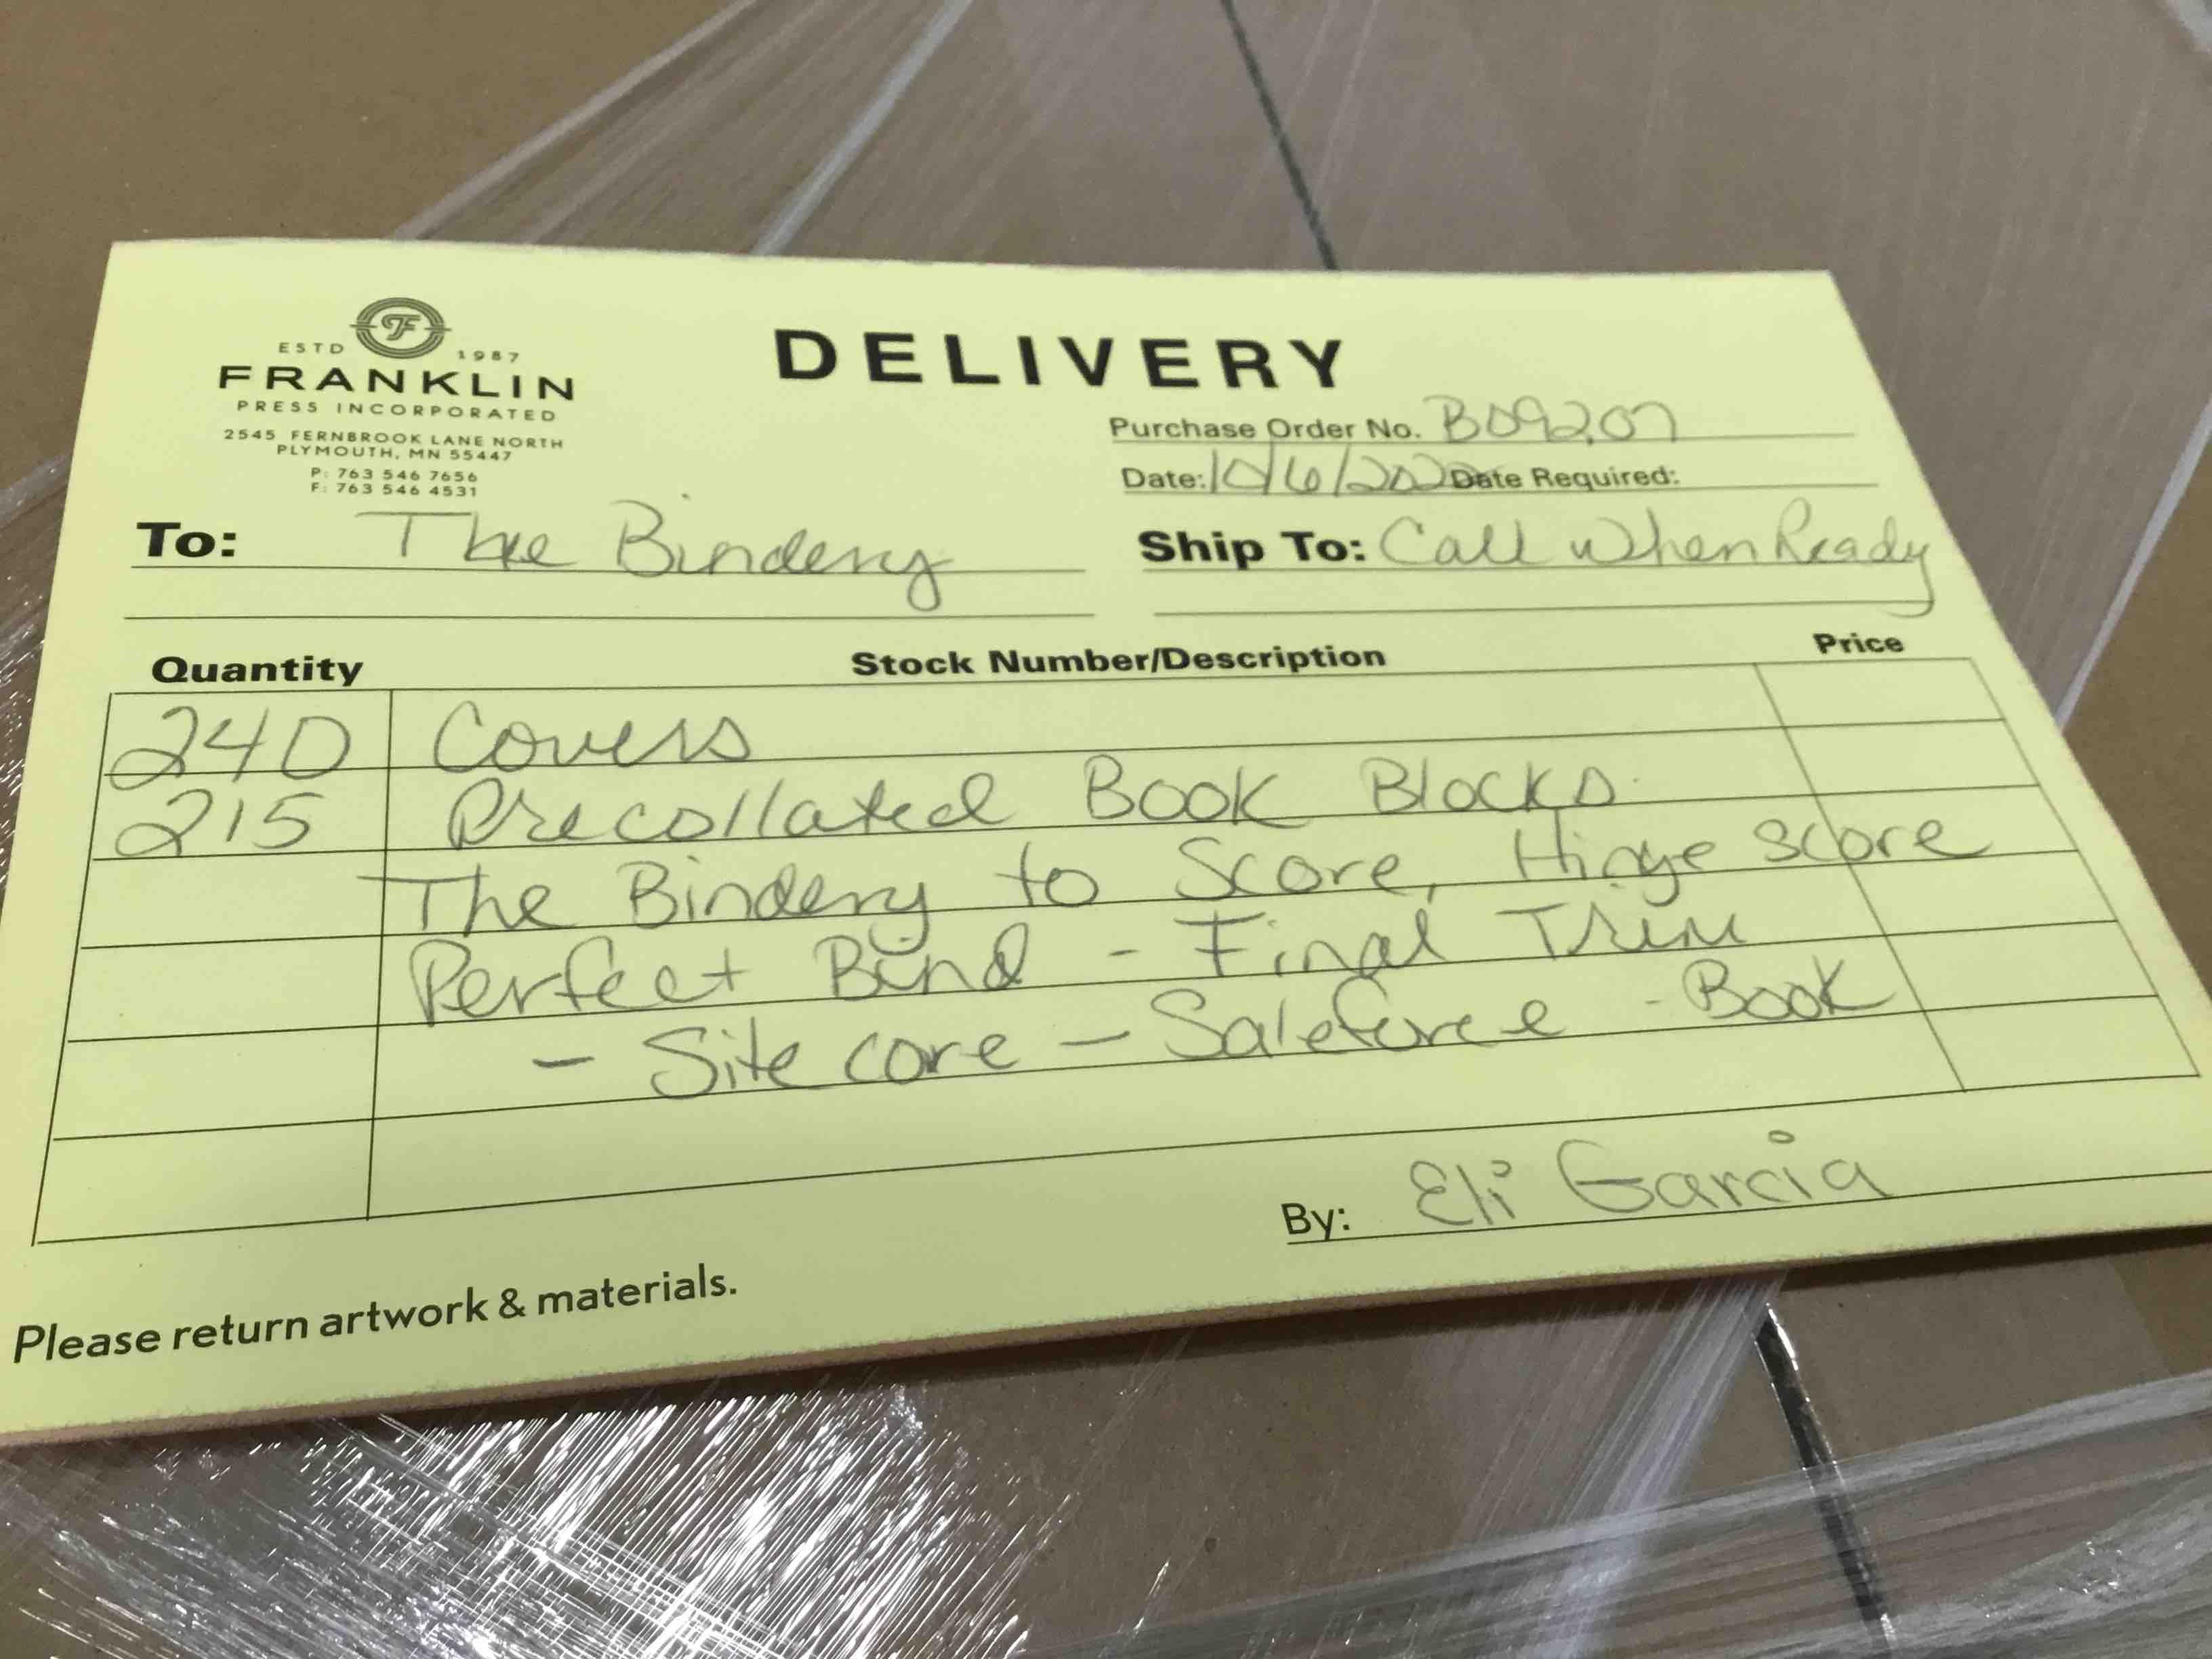 F
ESTD 1987
FRANKLIN
PRESS INCORPORATED
2545 FERNBROOK LANE NORTH
PLYMOUTH, MN 55447
P: 763 546 7656
F: 763 546 4531
DELIVERY
Purchase Order No. B09207
Date: 10/6/202 Date Required:
To: The Bindery
Ship To: Call When Ready
Quantity Stock Number/Description Price
240 Covers
215 Precollated Book Blocks
The Bindery to Score, Hinge Score
Perfect Bind - Final Trim
- Site core - Saleforce - Book
By: Eli Garcia
Please return artwork & materials.